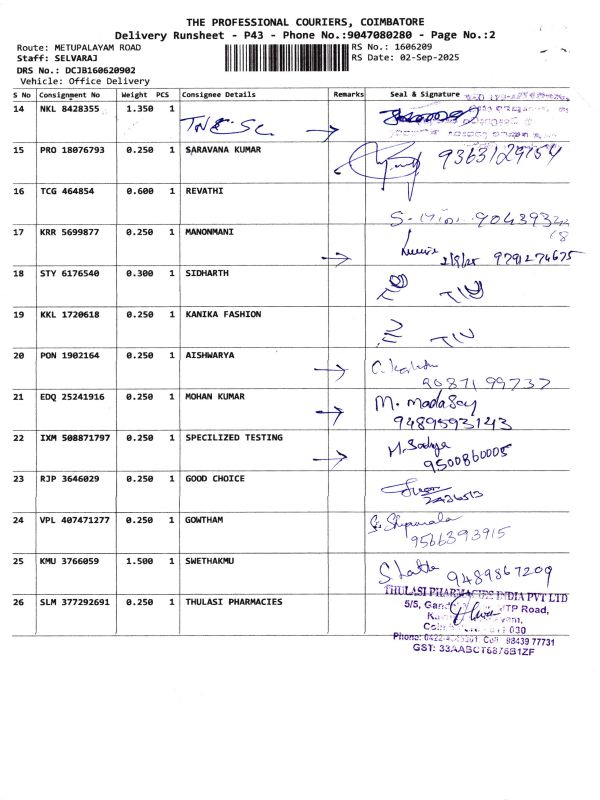 THE PROFESSIONAL COURIERS, COIMBATORE
Delivery Runsheet - P43 - Phone No.:9047080280 - Page No.:2
Route: METUPALAYAM ROAD RS No.: 1606209
Staff: SELVARAJ RS Date: 02-Sep-2025
DRS No.: DCJB160620902
Vehicle: Office Delivery
S No Consignment No Weight PCS Consignee Details Remarks Seal & Signature
14 NKL 8428355 1.350 1
TNESC →
15 PRO 18076793 0.250 1 SARAVANA KUMAR 9363129754
16 TCG 464854 0.600 1 REVATHI
17 KRR 5699877 0.250 1 MANONMANI
→ 2/9/25 9791274675
18 STY 6176540 0.300 1 SIDHARTH
19 KKL 1720618 0.250 1 KANIKA FASHION
20 PON 1902164 0.250 1 AISHWARYA
→
21 EDQ 25241916 0.250 1 MOHAN KUMAR M. Madasay
→ 9489593143
22 IXM 508871797 0.250 1 SPECILIZED TESTING M. Sadya
→ 9500860005
23 RJP 3646029 0.250 1 GOOD CHOICE
24 VPL 407471277 0.250 1 GOWTHAM
9566393915
25 KMU 3766059 1.500 1 SWETHAKMU
S. Latha 9489867209
26 SLM 377292691 0.250 1 THULASI PHARMACIES
THULASI PHARMACIES INDIA PVT LTD
5/5, MTP Road,
030
Phone: 0422 Cell: 98439 77731
GST: 33AABCT6876B1ZF